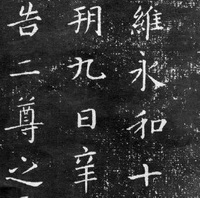 維永和十
朔九日辛
告二尊之